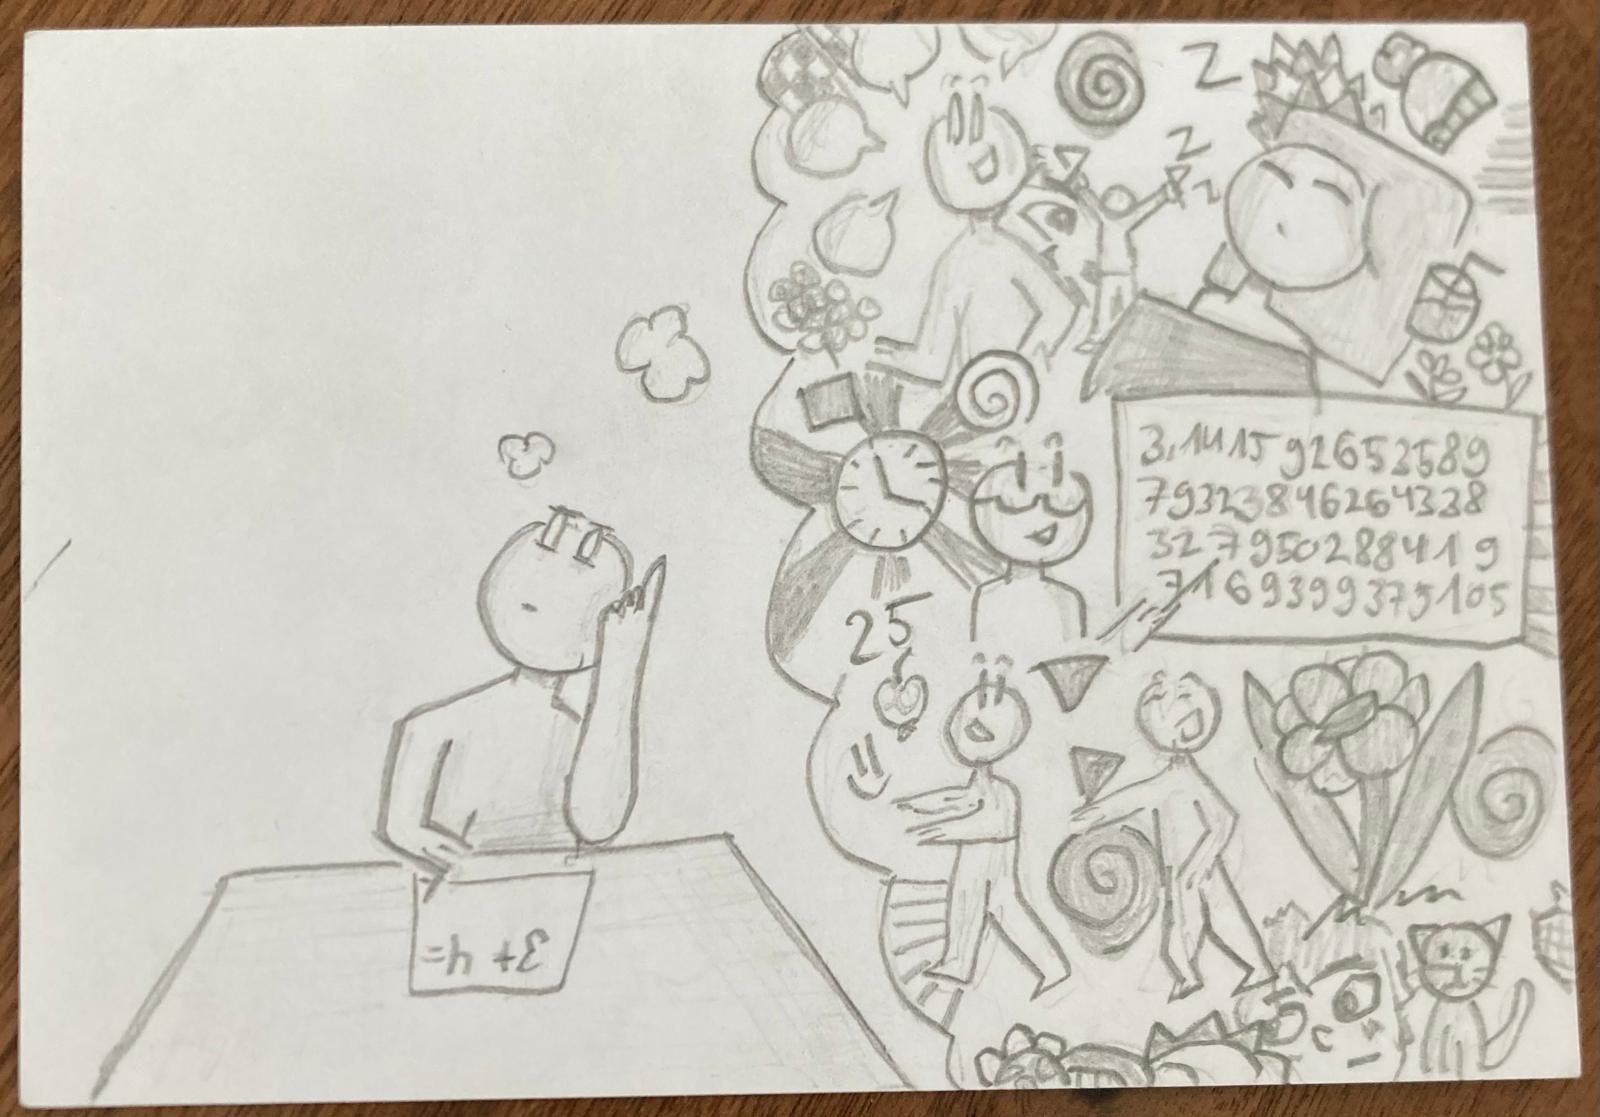 Z
Z
Z
3,1415 92653589
79323846264338
327950288419
7169399375105
25
3+4=